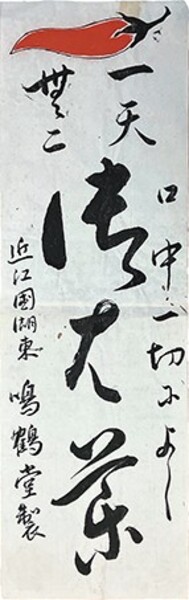 口中一切によし
一天
無二
御はな薬
近江国湖東 鳴鶴堂製